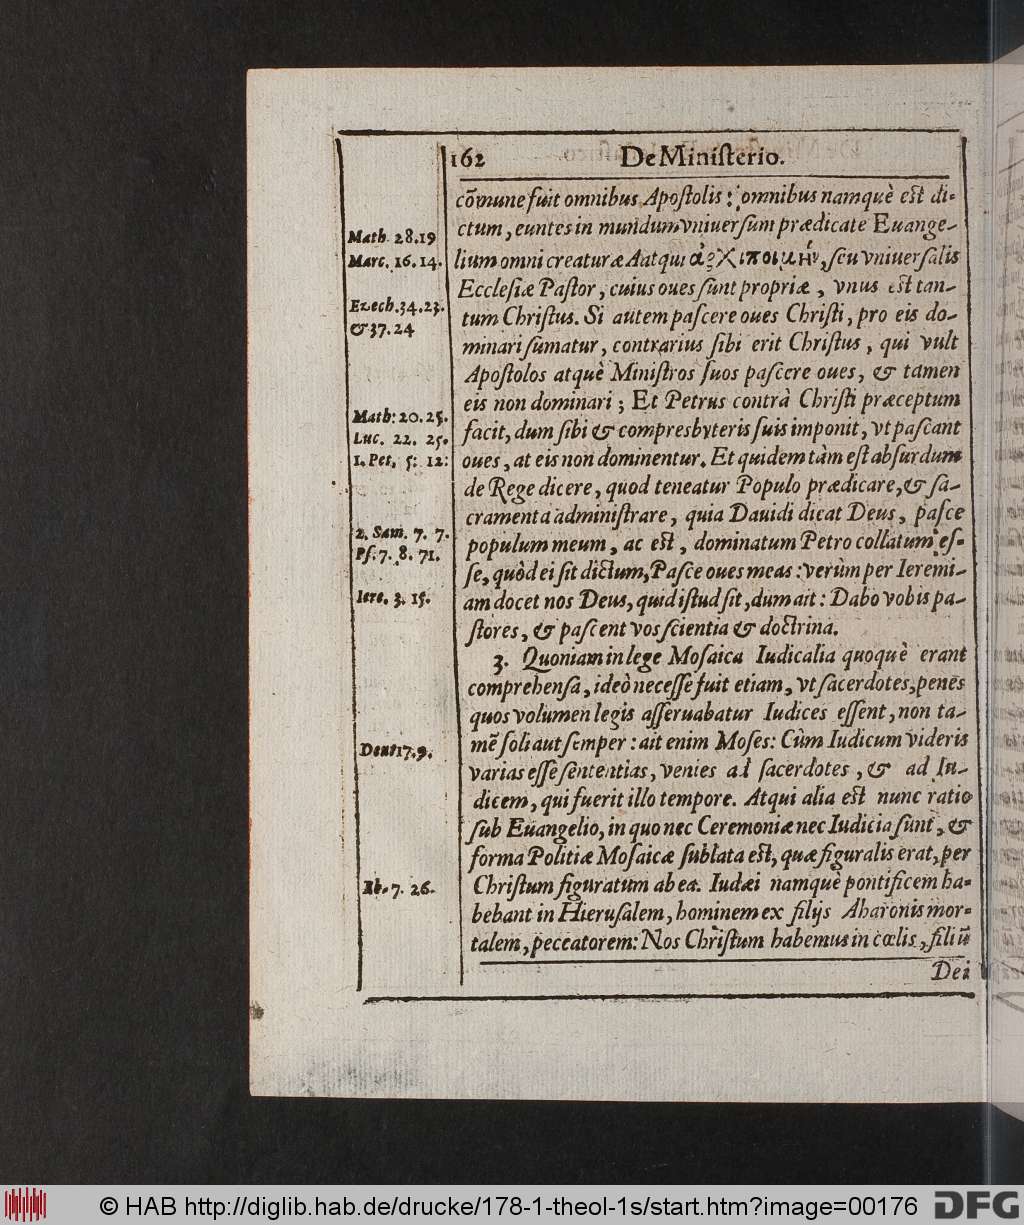 162 De Ministerio.
cõmune fuit omnibus Apostolis: omnibus namquè est di-
ctum, euntes in mundum vniuersum prædicate Euange-
Math. 28.19
Marc. 16.14.
lium omni creaturæ Aatqui ἀρχιποιμὴν, seu vniuersalis
Ecclesiæ Pastor, cuius oues sunt propriæ, vnus est tan-
Ezech. 34.23.
& 37.24
tum Christus. Si autem pascere oues Christi, pro eis do-
minari sumatur, contrarius sibi erit Christus, qui vult
Apostolos atquè Ministros suos pascere oues, & tamen
eis non dominari; Et Petrus contrà Christi præceptum
Math: 20.25.
Luc. 22. 25.
1. Pet, 5: 12:
facit, dum sibi & compresbyteris suis imponit, vt pascant
oues, at eis non dominentur. Et quidem tàm est absurdum
de Rege dicere, quod teneatur Populo prædicare, & sa-
cramenta administrare, quia Dauidi dicat Deus, pasce
2. Sam. 7. 7.
Ps. 7. 8. 71.
populum meum, ac est, dominatum Petro collatum es-
se, quòd ei sit dictum, Pasce oues meas: verùm per Ieremi-
Iere. 3. 15.
am docet nos Deus, quid istud sit, dum ait: Dabo vobis pa-
stores, & pascent vos scientia & doctrina.
3. Quoniam in lege Mosaica Iudicalia quoquè erant
comprehensa, ideò necesse fuit etiam, vt sacerdotes, penes
quos volumen legis asseruabatur Iudices essent, non ta-
mẽ soli aut semper: ait enim Moses: Cùm Iudicum videris
Deut 17.9.
varias esse sententias, venies ad sacerdotes, & ad Iu-
dicem, qui fuerit illo tempore. Atqui alia est nunc ratio
sub Euangelio, in quo nec Ceremoniæ nec Iudicia sunt, &
forma Politiæ Mosaicæ sublata est, quæ figuralis erat, per
Christum figuratum ab ea. Iudæi namquè pontificem ha-
Eb. 7. 26.
bebant in Hierusalem, hominem ex filijs Aharonis mor-
talem, peccatorem: Nos Christum habemus in cœlis, filiũ
Dei
© HAB http://diglib.hab.de/drucke/178-1-theol-1s/start.htm?image=00176
DFG